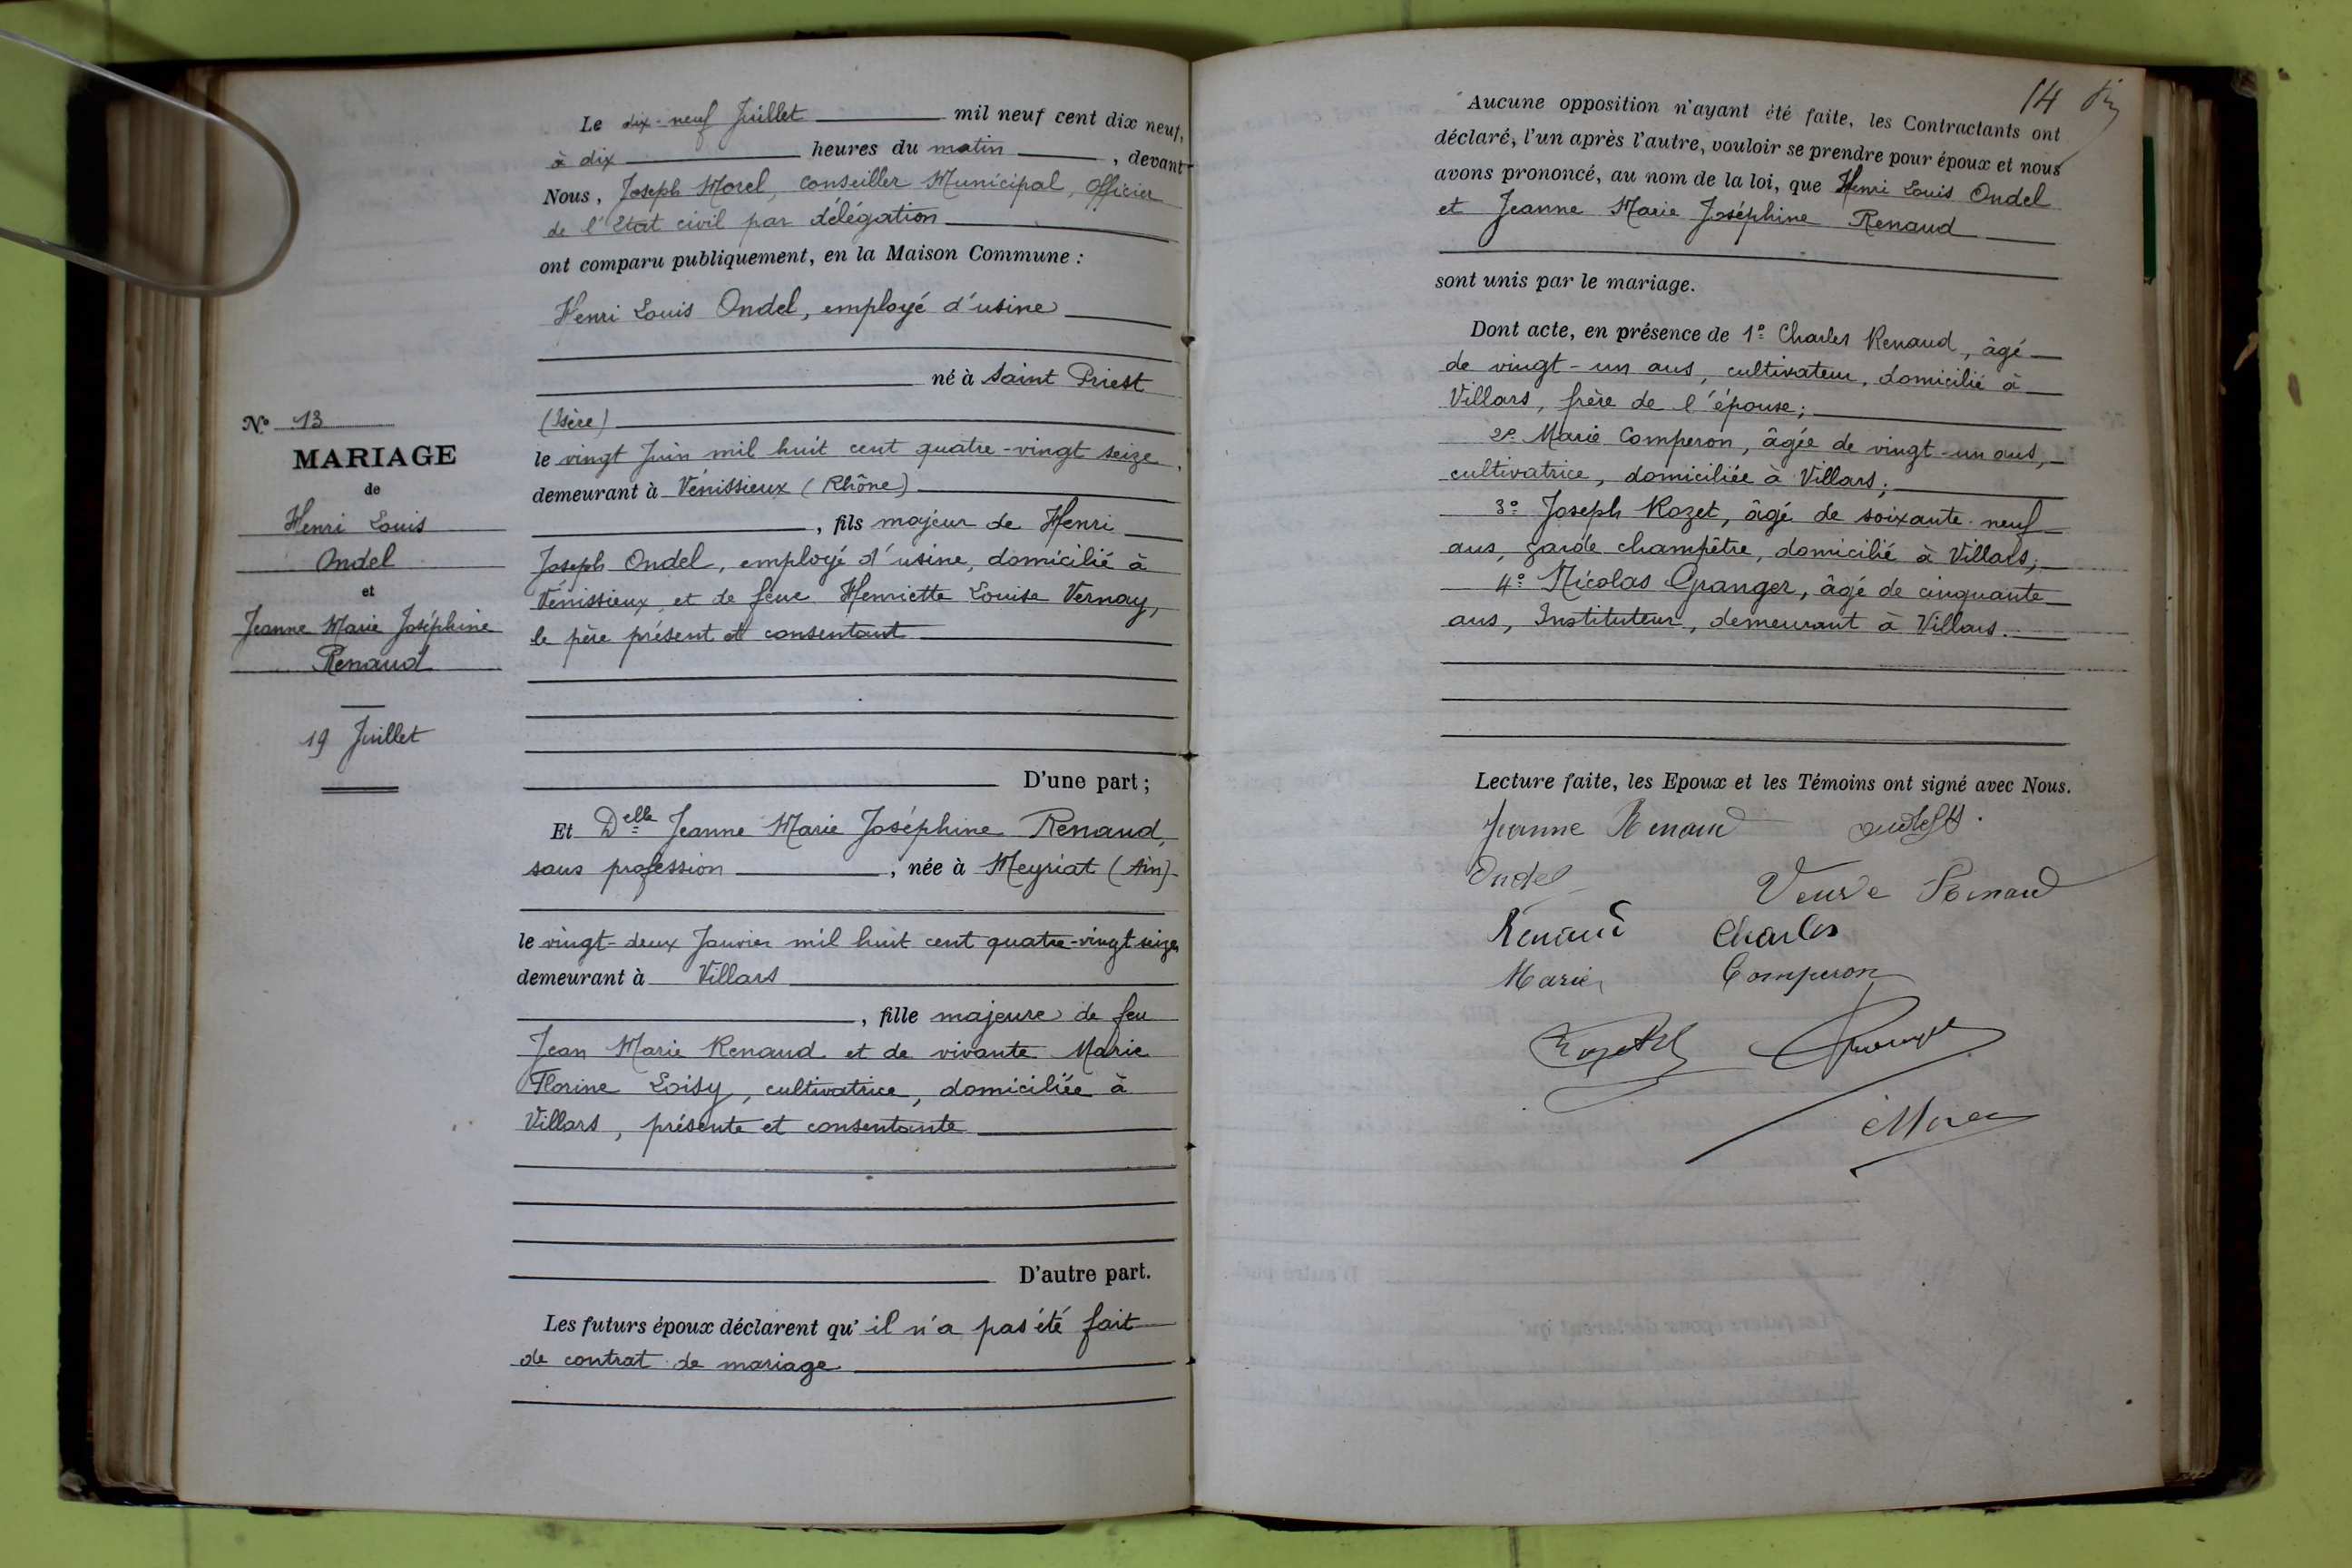 Le dix-neuf Juillet mil neuf cent dix neuf,
à dix heures du matin, devant
Nous, Joseph Morel, conseiller Municipal, Officier
de l'Etat civil par délégation
ont comparu publiquement, en la Maison Commune :
Henri Louis Ondel, employé d'usine
né à Saint Priest
(Isère)
le vingt Juin mil huit cent quatre-vingt seize,
demeurant à Vénissieux (Rhône)
, fils majeur de Henri
Joseph Ondel, employé d'usine, domicilié à
Vénissieux, et de feue Henriette Louise Vernay,
le père présent et consentant
D'une part ;
Et Delle Jeanne Marie Joséphine Renaud,
sans profession, née à Meyriat (Ain)
le vingt-deux Janvier mil huit cent quatre-vingt seize,
demeurant à Villars
, fille majeure de feu
Jean Marie Renaud et de vivante Marie
Florine Loisy, cultivatrice, domiciliée à
Villars, présente et consentante
D'autre part.
Les futurs époux déclarent qu'il n'a pas été fait
de contrat de mariage
N° 13
MARIAGE
de
Henri Louis
Ondel
et
Jeanne Marie Joséphine
Renaud
19 Juillet
14
Aucune opposition n'ayant été faite, les Contractants ont
déclaré, l'un après l'autre, vouloir se prendre pour époux et nous
avons prononcé, au nom de la loi, que Henri Louis Ondel
et Jeanne Marie Joséphine Renaud
sont unis par le mariage.
Dont acte, en présence de 1° Charles Renaud, âgé
de vingt-un ans, cultivateur, domicilié à
Villars, frère de l'épouse;
2° Marie Comperon, âgée de vingt-un ans,
cultivatrice, domiciliée à Villars;
3° Joseph Rozet, âgé de soixante-neuf
ans, garde champêtre, domicilié à Villars;
4° Nicolas Granger, âgé de cinquante
ans, Instituteur, demeurant à Villars.
Lecture faite, les Epoux et les Témoins ont signé avec Nous.
Jeanne Renaud
Ondel Veuve Renaud
Renaud Charles
Marie Comperon
Granger
Morel